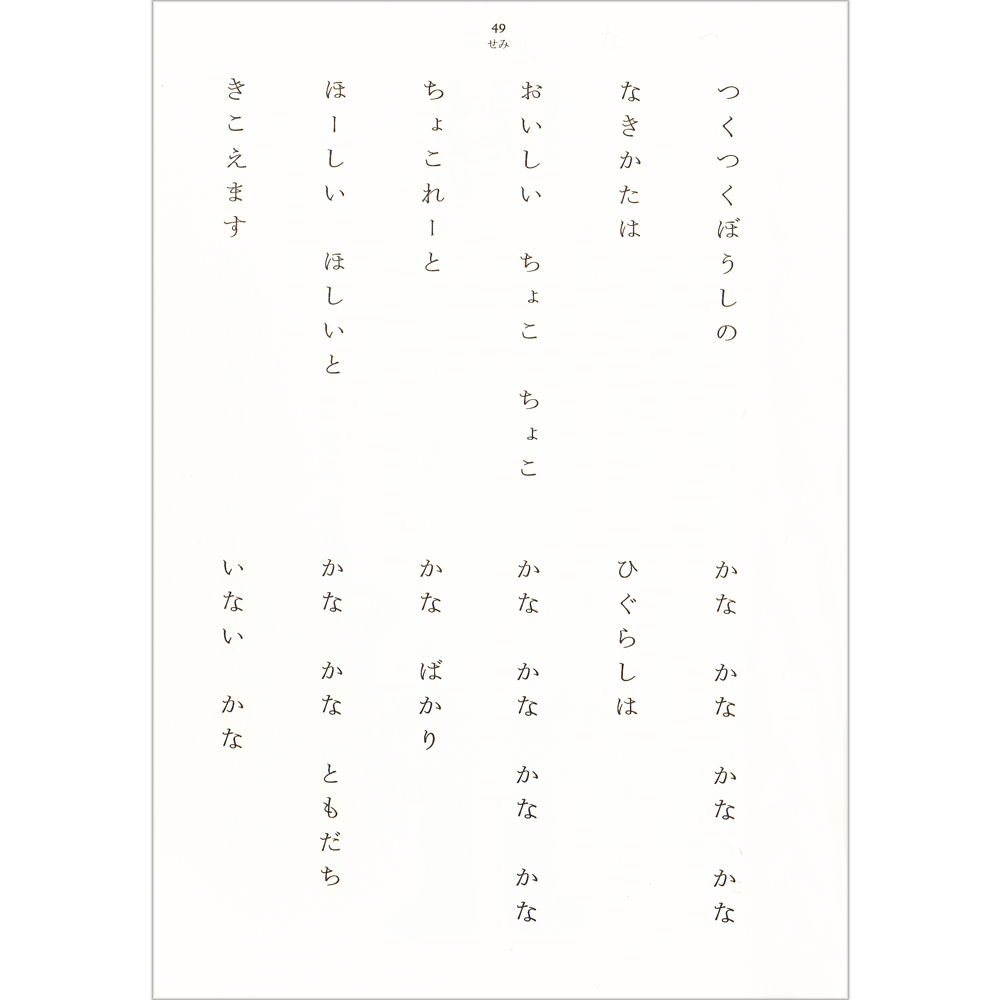 49
せみ
つくつくぼうしの
なきかたは
おいしい　ちょこ　ちょこ
ちょこれーと
ほーしい　ほしいと
きこえます
かな　かな　かな　かな
ひぐらしは
かな　かな　かな　かな
かな　ばかり
かな　かな　ともだち
いない　かな